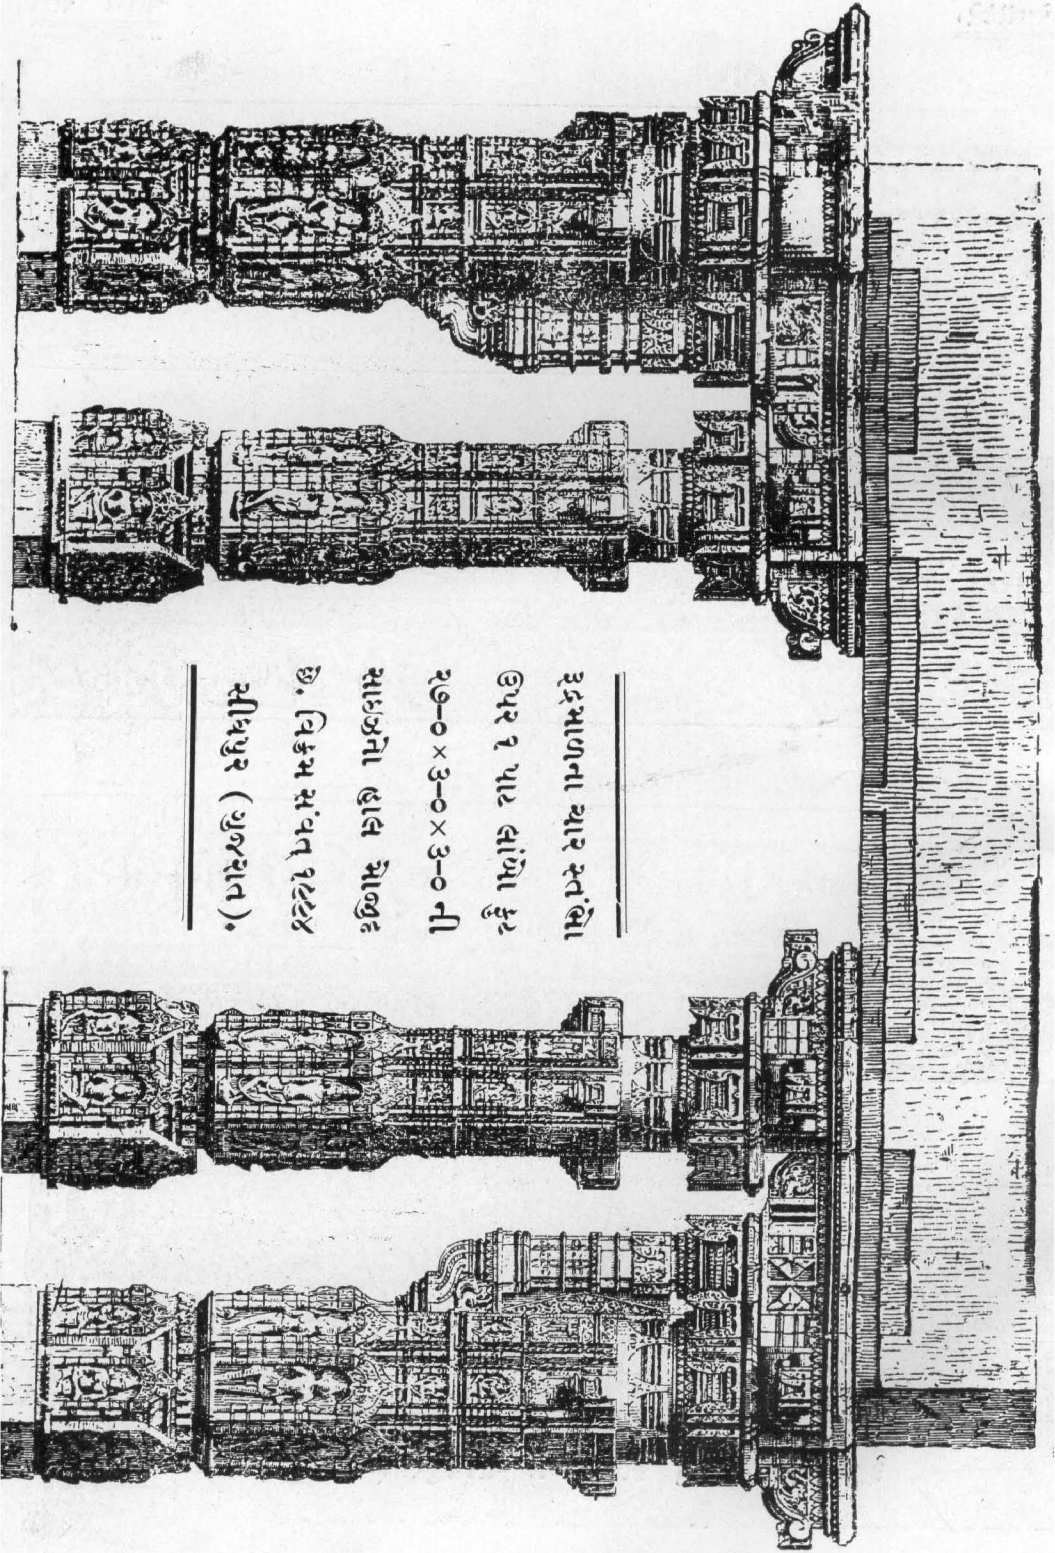 રૂદ્રમાળના ચાર સ્તંભો
ઉપર ૧ પાટ લાંબો ફૂટ
૨૭–૦×૩–૦×૩–૦ ની
સાઇઝનો હાલ મોજુદ
છે. વિક્રમ સંવત્
સીધપુર (ગુજરાત).